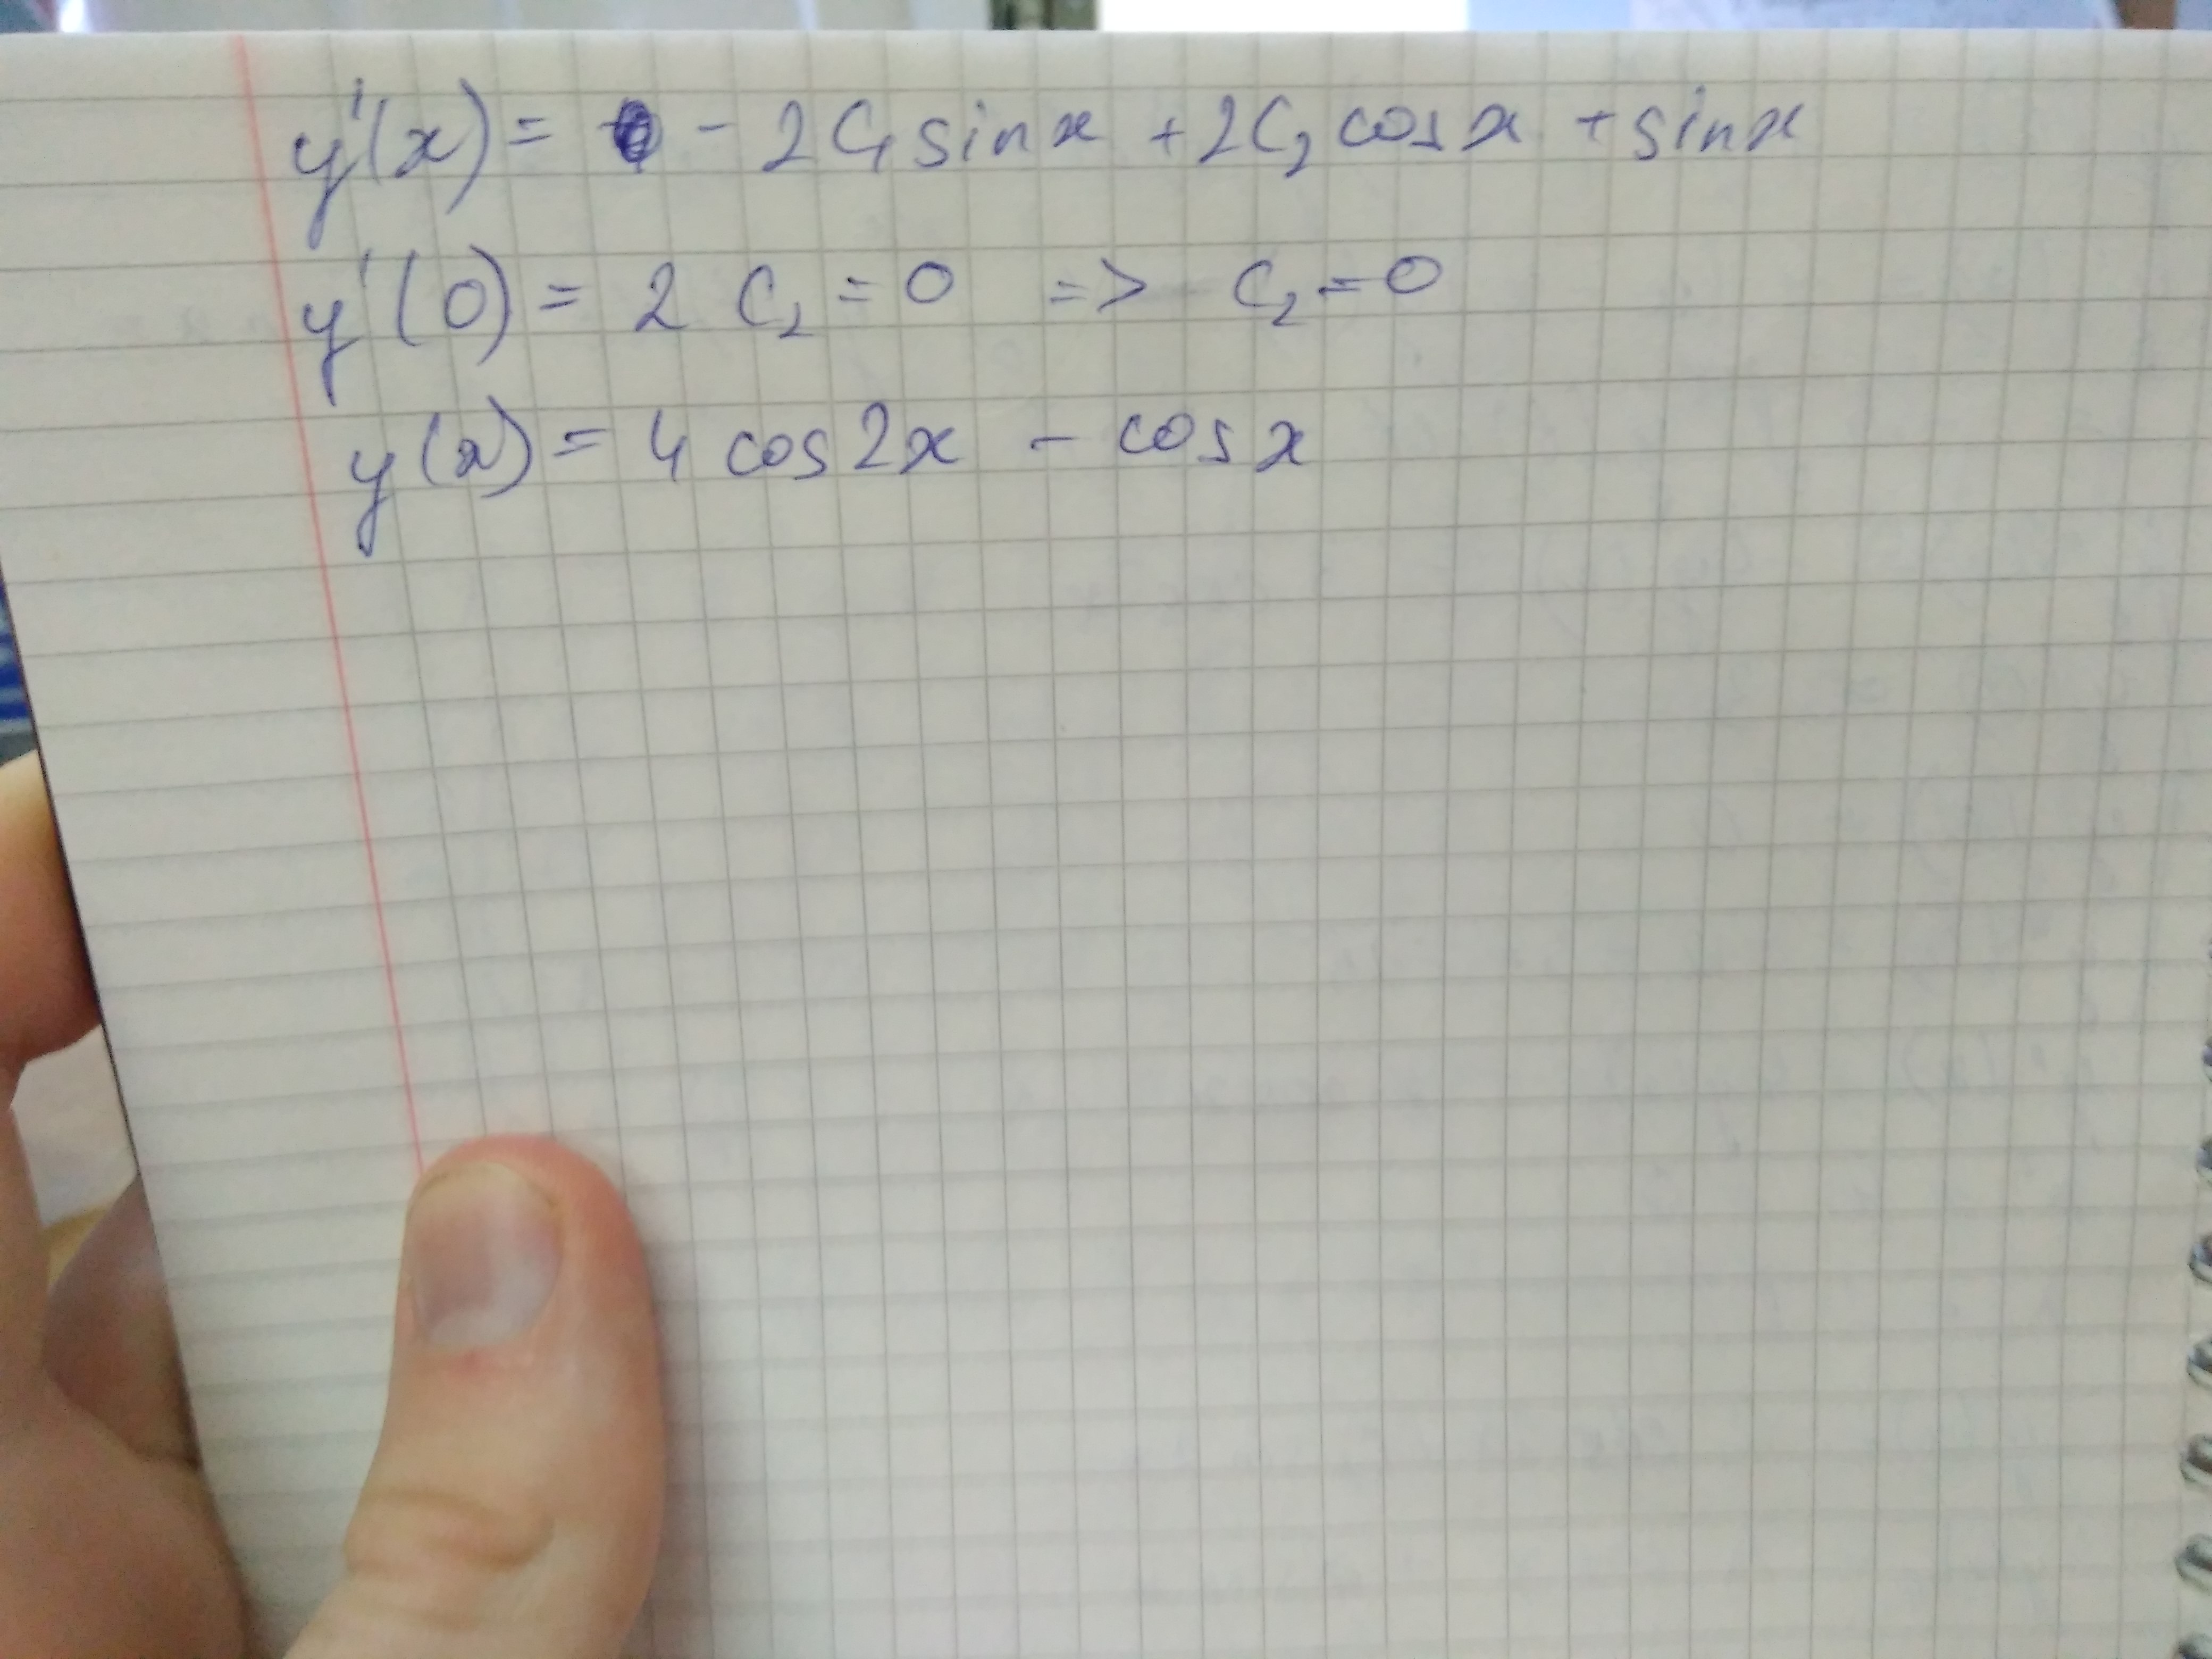 y'(x) = - 2C₁ sin x + 2C₂ cos x + sin x
y'(0) = 2 C₂ = 0 => C₂ = 0
y(x) = 4 cos 2x - cos x